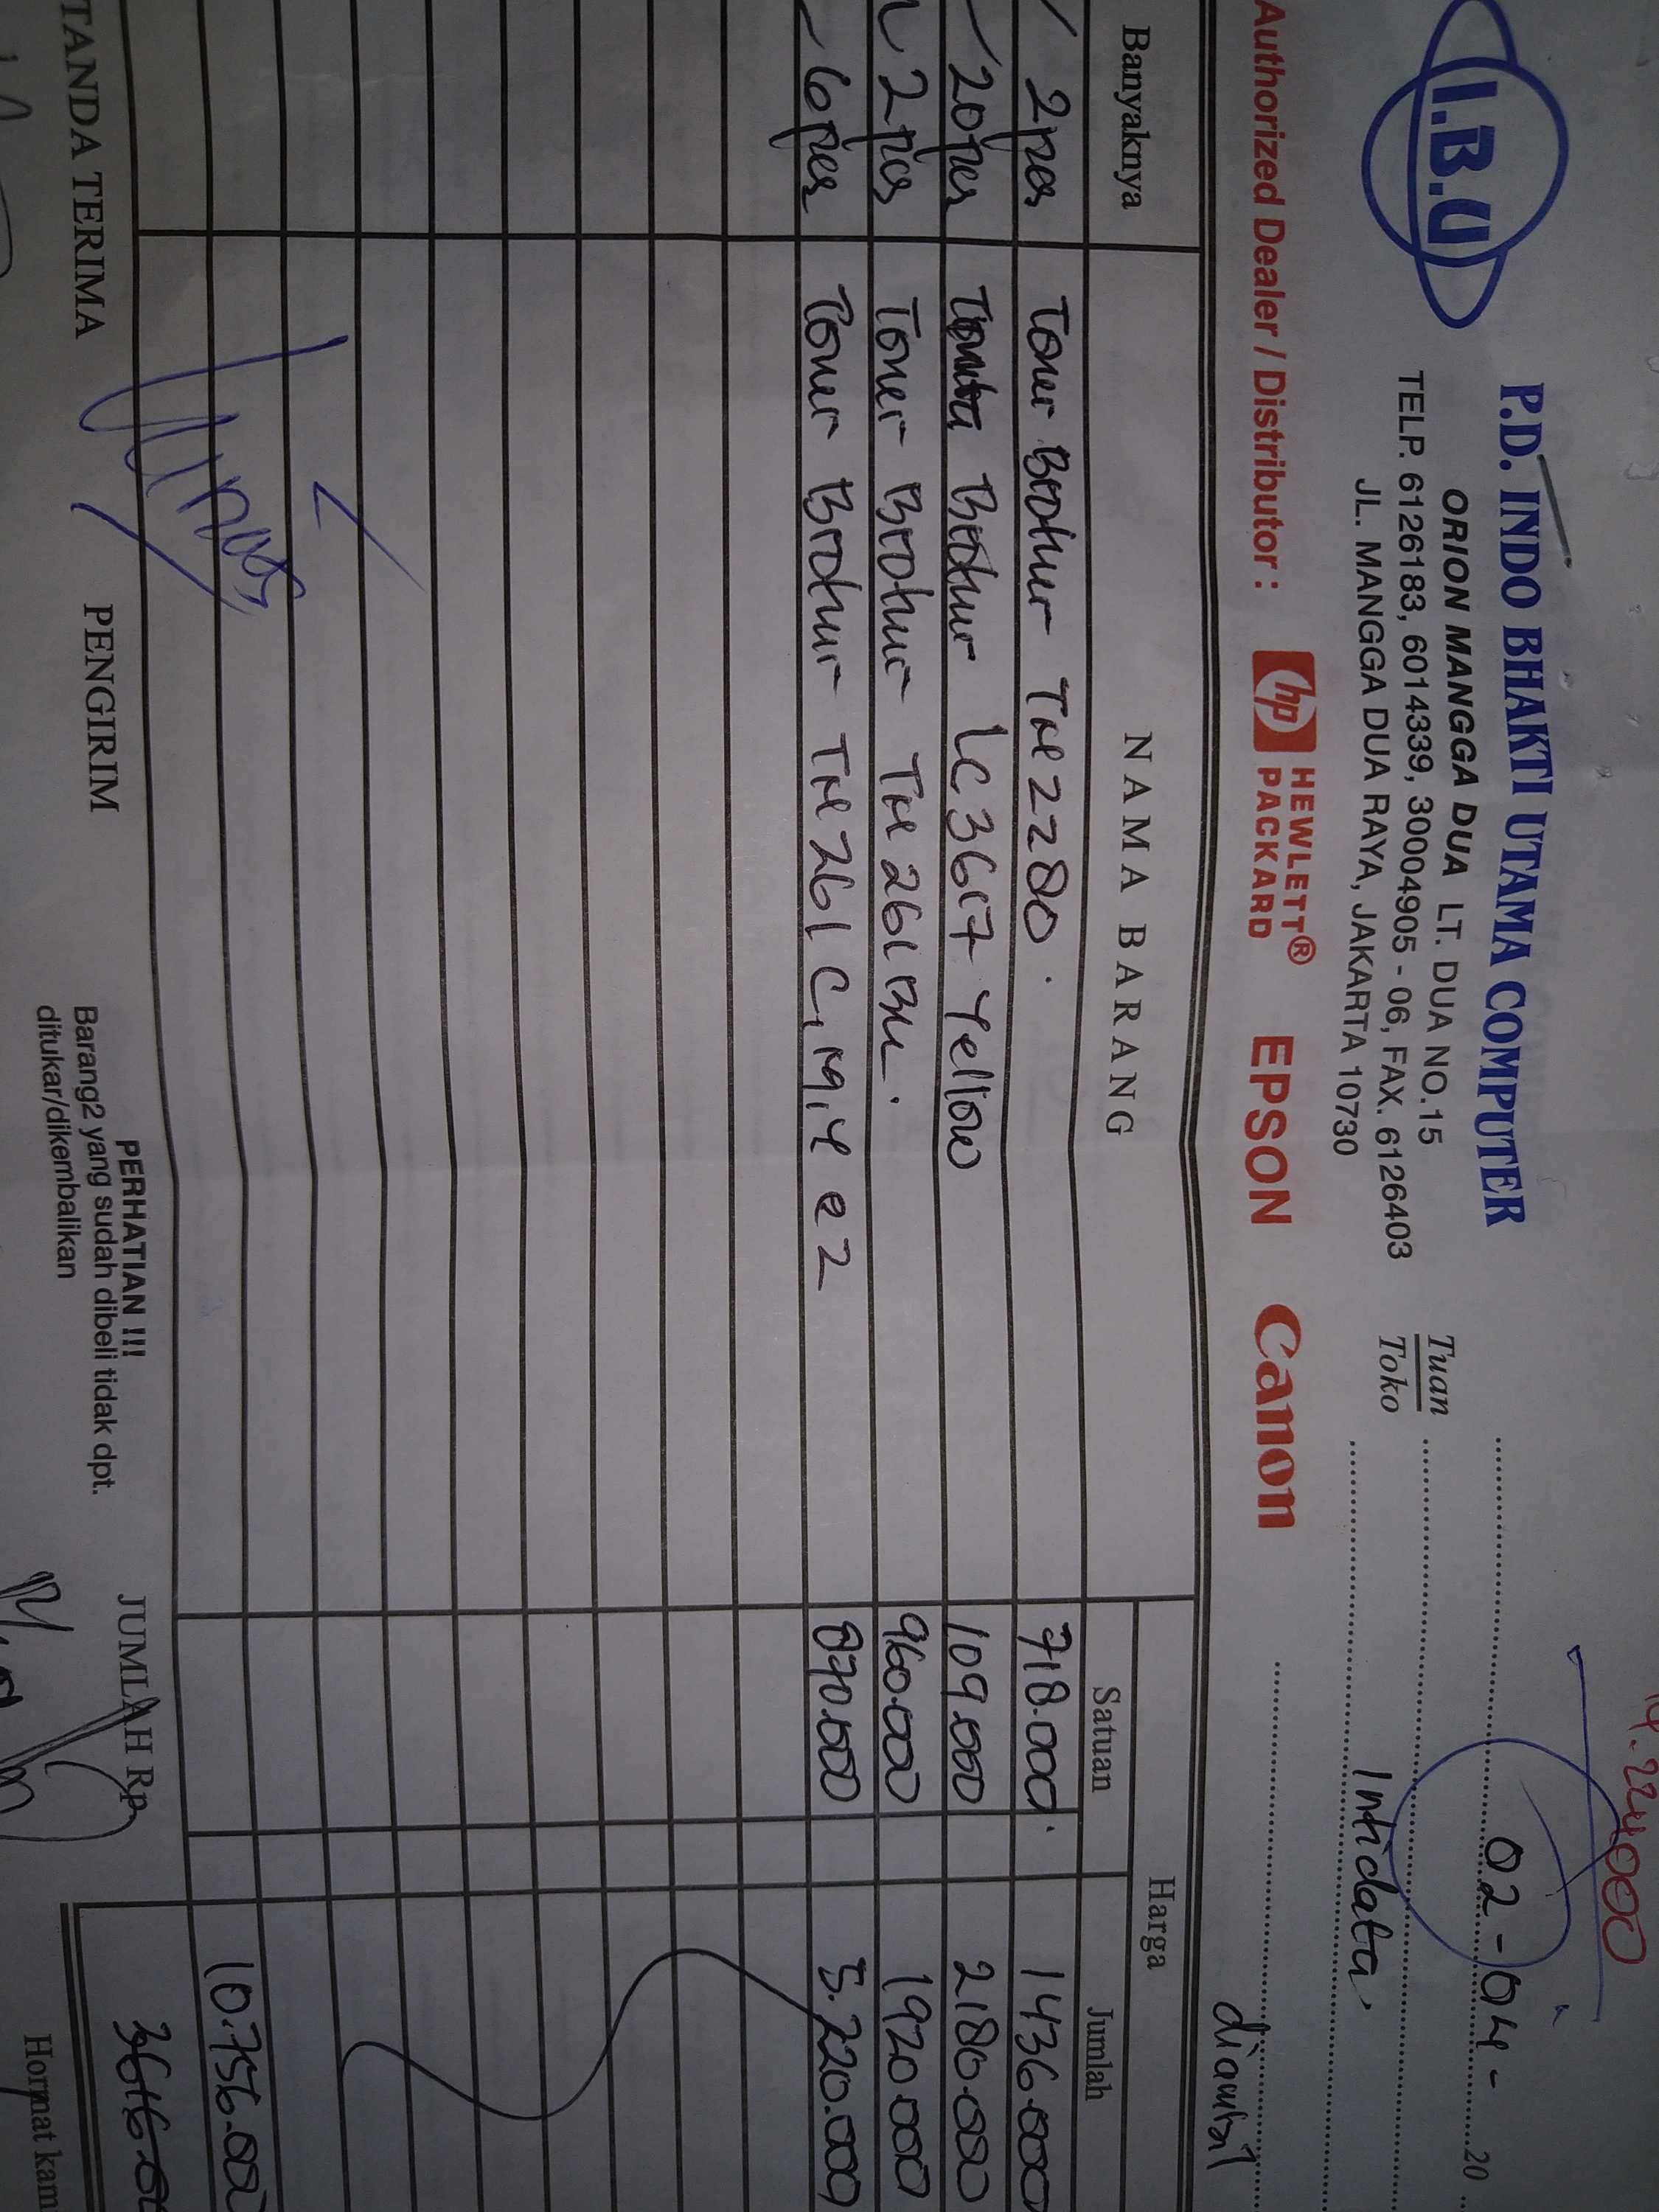 I.B.U
P.D. INDO BHAKTI UTAMA COMPUTER
ORION MANGGA DUA LT. DUA NO.15
TELP. 6126183, 6014339, 30004905 - 06, FAX. 6126403
JL. MANGGA DUA RAYA, JAKARTA 10730
02-04- 20
Tuan
Toko
Intidata.
diambil
Authorized Dealer / Distributor : hp HEWLETT® PACKARD EPSON Canon
Banyaknya NAMA BARANG Harga
Satuan Jumlah
2 pcs Toner Brother TN 2280. 718.000. 1436.000
20 pcs Tinta Brother LC 3617 Yellow 109.000 2180.000
2 pcs Toner Brother TN 261 BK. 960.000 1920.000
6 pcs Toner Brother TN 261 C, M, Y @ 2 870.000 5.220.000
10.756.000
TANDA TERIMA PENGIRIM
PERHATIAN !!!
Barang2 yang sudah dibeli tidak dpt.
ditukar/dikembalikan
JUMLAH Rp.
Hormat kami